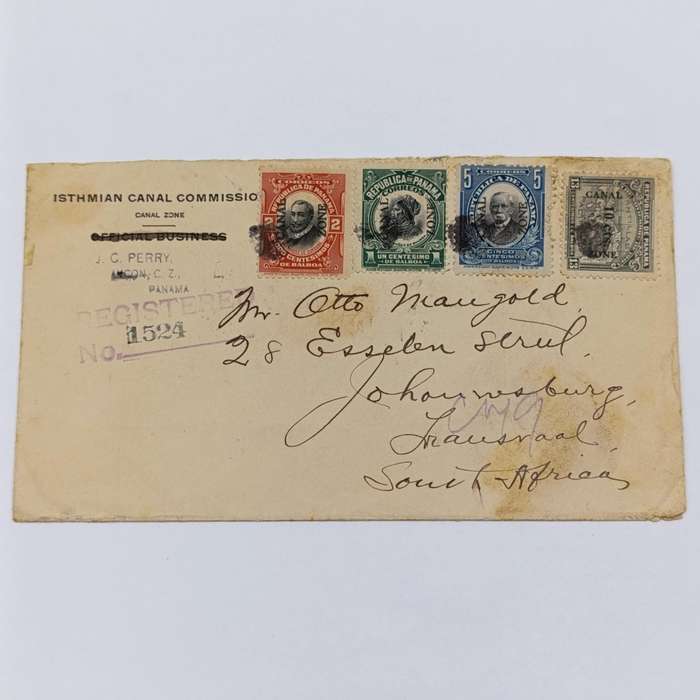 ISTHMIAN CANAL COMMISSIO
CANAL ZONE
OFFICIAL BUSINESS
J. C. PERRY,
ANCON, C. Z.,
PANAMA
REGISTERED
No. 1524
CORREOS
REPUBLICA DE PANAMA
2 2
CENTESIMOS
DE BALBOA
CANAL ZONE
REPUBLICA DE PANAMA
CORREOS
1 1
UN CENTESIMO
DE BALBOA
CANAL ZONE
CORREOS
REPUBLICA DE PANAMA
5 5
CINCO
CENTESIMOS
DE BALBOA
CANAL ZONE
CANAL
ZONE
REPUBLICA DE PANAMA
Mr. Otto Mangold,
28 Esselen Street,
Johannesburg,
Transvaal,
South Africa